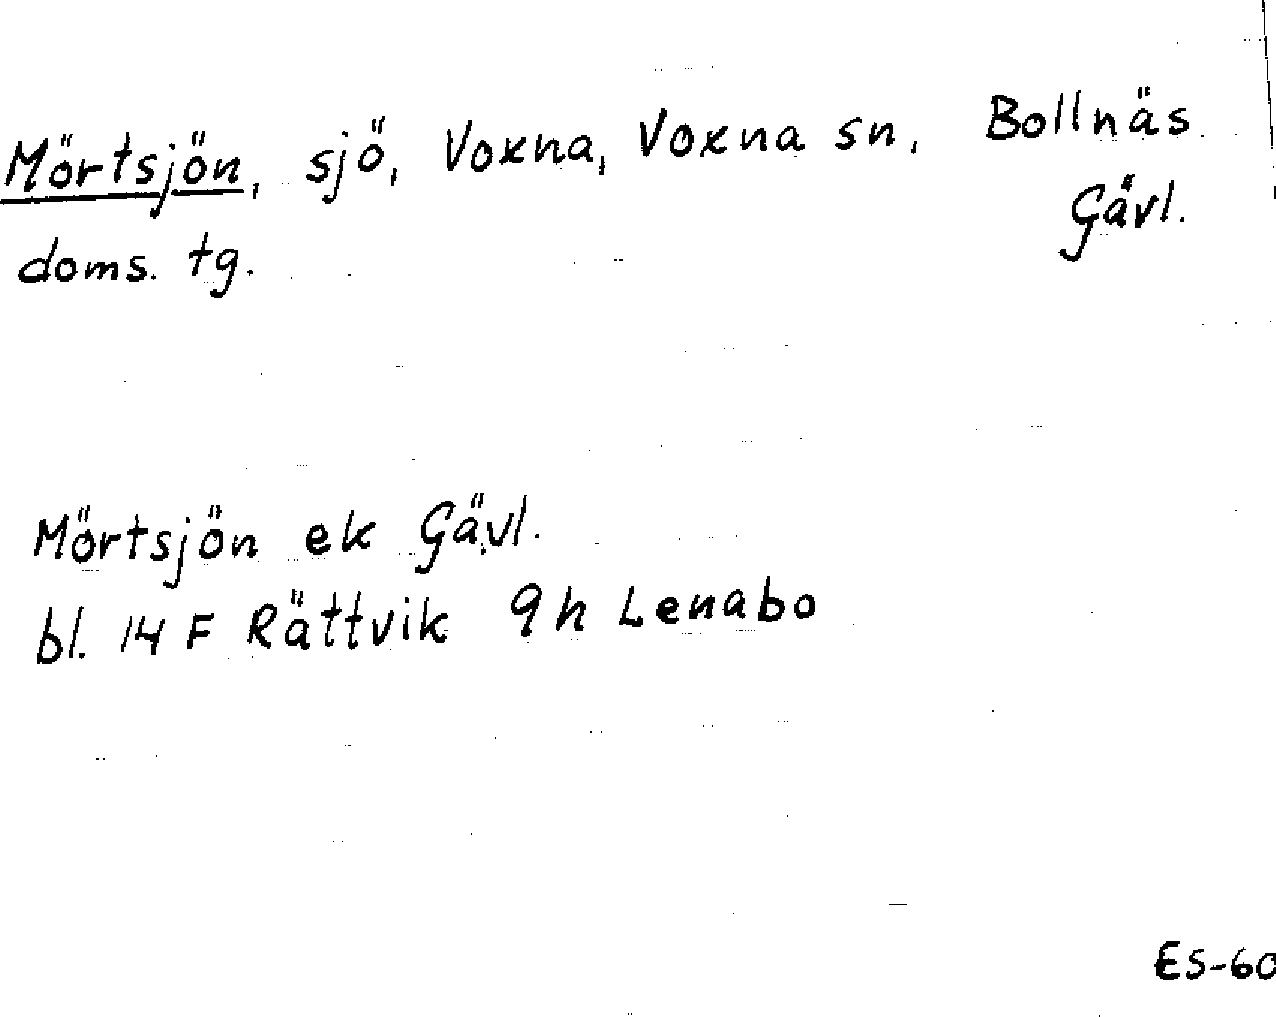 Mörtsjön, sjö, Voxna, Voxna sn, Bollnäs
doms. tg. Gävl.
Mörtsjön ek Gävl.
bl. 14 F Rättvik 9h Lenabo
ES-60